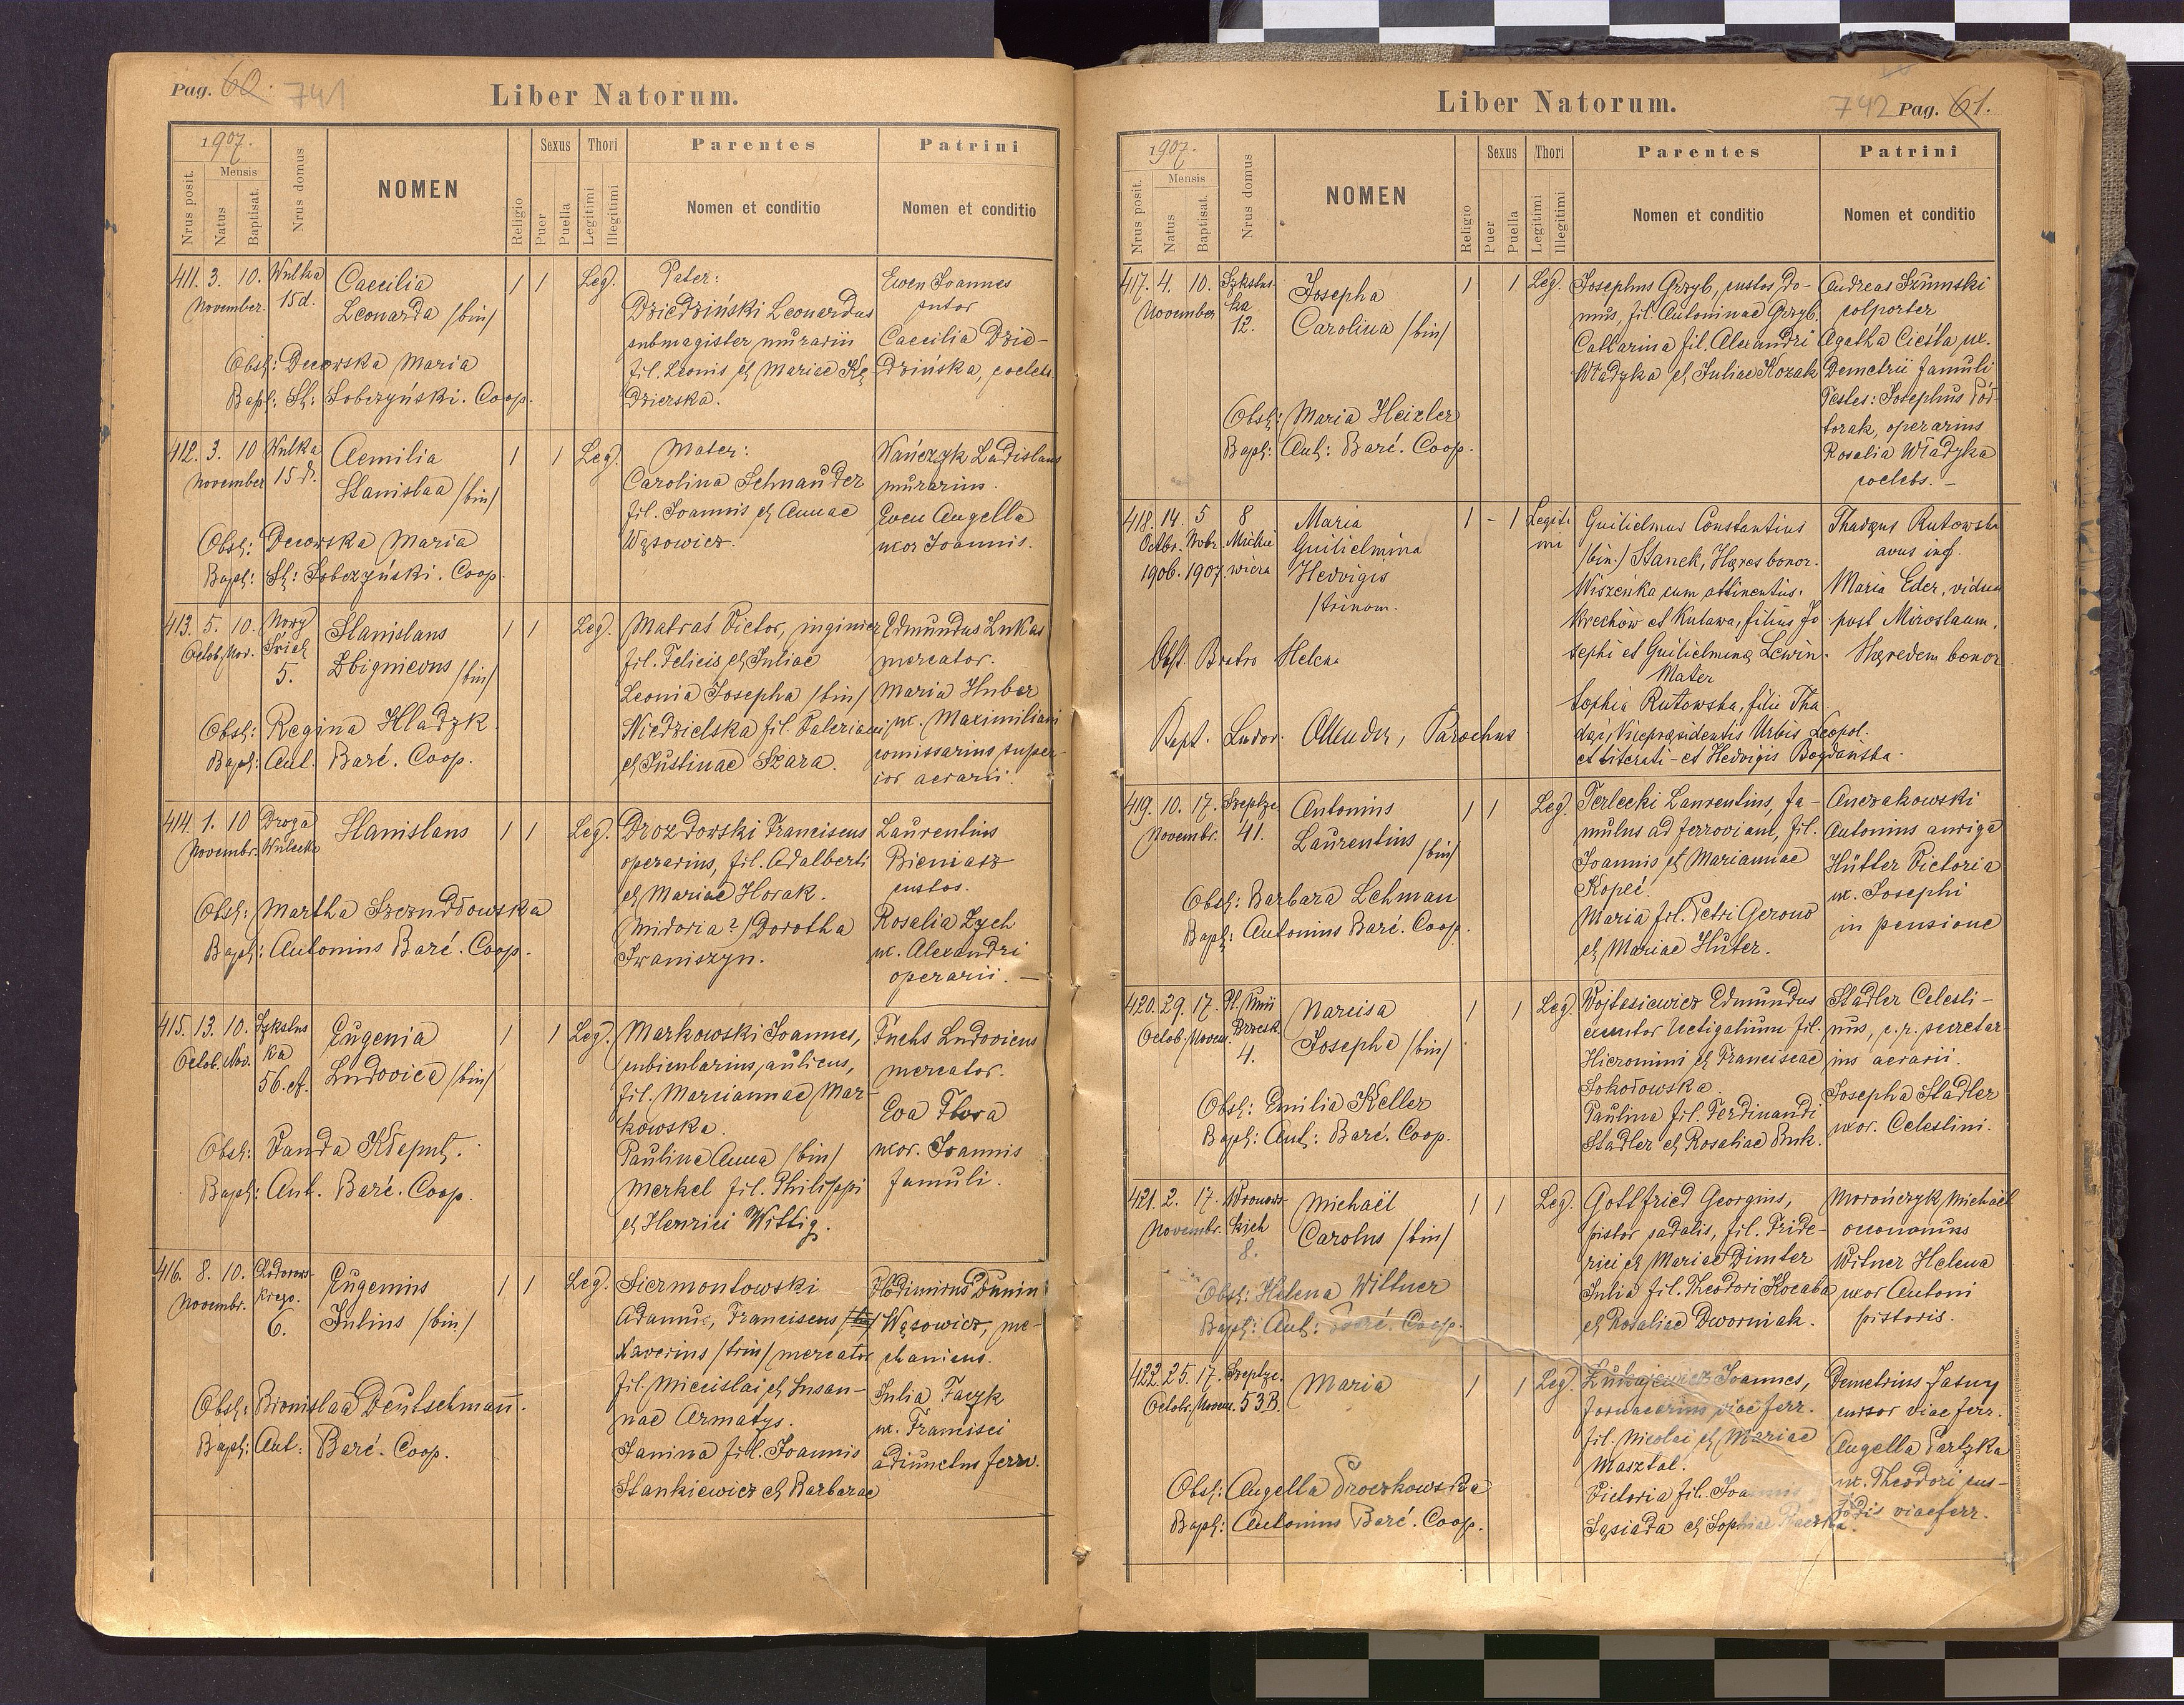 Pag. 60. 741
Liber Natorum.
1907.
Nrus posit.
Mensis
Natus
Baptisat.
Nrus domus
NOMEN
Religio
Sexus
Puer
Puella
Thori
Legitimi
Illegitimi
Parentes
Nomen et conditio
Patrini
Nomen et conditio
411. 3. 10. Wulka
November. 15d.
Caecilia
Leonarda /bin/
1 1 Leg.
Pater:
Dziedziński Leonardus
submagister murarii
fil. Leonis et Mariae Kę-
dzierska.
Ewen Joannes
sutor
Caecilia Dzie-
dzińska, coelebs.
Obst: Decowska Maria
Bapt: St: Sobczyński. Coop.
412. 3. 10 Wulka
November 15 d.
Aemilia
Stanislaa /bin/
1 1 Leg.
Mater:
Carolina Schnauder
fil. Joannis et Annae
Wąsowicz.
Wańczyk Ladislaus
murarius.
Ewen Angella
uxor Joannis.
Obst: Decowska Maria
Bapt: St: Sobczyński. Coop.
413. 5. 10. Nowy
Octob./Nov. Świat
5.
Stanislaus
Zbignieous /bin/
1 1 Leg.
Matraś Victor, inginier
fil. Felicis et Juliae
Leonia Josepha /bin/
Niedzielska fil. Valeriani
et Justinae Szara.
Edmundus Lukas
mercator.
Maria Huber
ux. Maximiliani
comissarius super-
ior aerarii
Obst: Regina Hladzk
Bapt: Ant. Baré. Coop.
414. 1. 10 Droga
Novembr. Wulecka
Stanislaus
1 1 Leg.
Drozdowski Franciscus
operarius, fil. Adalberti
et Mariae Horak.
Midoria?/Dorotha
Iwaniszyn.
Laurentius
Bieniasz
custos.
Rosalia Zych
ux. Alexandri
operarii. —
Obst: Martha Szczudłowska
Bapt: Antonius Baré. Coop.
415. 13. 10. Sykstus
Octob. Nov. ka
56. of.
Eugenia
Ludovica /bin/
1 1 Leg.
Markowski Joannes,
cubicularius, aulicus,
fil. Mariannae Mar-
kowska.
Paulina Anna /bin/
Merkel fil. Philippi
et Henrici Wittig.
Fuchs Ludovicus
mercator.
Eva Flora
uxor. Joannis
famuli.
Obst: Vanda Kłeput.
Bapt: Ant. Baré. Coop.
416. 8. 10. Chodorows-
Novembr. kiego.
6.
Eugenius
Julius /bin/
1 1 Leg.
Siermontowski
Adamus, Franciscus
Xaverius /trin/ mercator
fil. Miecislai et Susan-
nae Armatys.
Janina fil. Joannis
Stankiewicz et Barbarae
Vlodimirus Dunin
Wąsowicz, me-
chanicus.
Julia Faczk
ux. Francisci
adiunctus ferrv.
Obst: Bronislaa Deutschmann.
Bapt: Ant: Baré. Coop.
Liber Natorum.
742 Pag. 61.
1907.
Nrus posit.
Mensis
Natus
Baptisat.
Nrus domus
NOMEN
Religio
Sexus
Puer
Puella
Thori
Legitimi
Illegitimi
Parentes
Nomen et conditio
Patrini
Nomen et conditio
417. 4. 10. Sykstus-
November ka
12.
Josepha
Carolina /bin/
1 1 Leg.
Josephus Grzyb, custos do-
mus, fil. Antoninae Grzyb.
Catharina fil. Alexandri
Władyka et Juliae Kozak
Andreas Szumski
colporter
Agatha Cieśla ux.
Demetrii famuli
Testes: Josephus Pół-
torak, operarius
Rosalia Władyka
coelebs. —
Obst: Maria Heizler
Bapt: Ant: Baré. Coop.
418. 14. 5 8
Octbr. Nvbr. Mickie
1906. 1907. wicza
Maria
Guilielmina
Hedvigis
/trinom.
1 - 1 Legiti
mi
Guilielmus Constantius
/bin./ Stanek, Hæres bonor.
Wiszenka cum attinentiis.
Krechów et Kutawa, filius Jo
sephi et Guilielminæ Lewin.
Mater
Sophia Rutowska, filii Tha
dæi, Vicepræsidentis Urbis Leopol.
et literati - et Hedvigis Bogdanska.
Thadæus Rutowski
avus inf.
Maria Eder, vidua
post Miroslaum,
Hæredem bonor
Obst. Bretro Helena
Bapt. Ludov. Ollender, Parochus
419. 10. 17. Szeptyc
Novembr. 41.
Antonius
Laurentius /bin/
1 1 Leg.
Terlecki Laurentius, fa-
mulus ad ferroviam, fil.
Joannis et Mariannae
Kopeć.
Maria fil. Petri Gerono
et Mariae Huter.
Anczakowski
Antonius auriga
Hütter Victoria
ux. Josephi
in pensione
Obst: Barbara Lehman
Bapt: Antonius Baré. Coop.
420. 29. 17. Pl. Unii
Octob./Novem. Brzesk.
4.
Narcisa
Josepha /bin/
1 1 Leg.
Wojtesiewicz Edmundus
executor vetigalium fil.
Hieronimi et Franciscae
Sokołowska.
Paulina fil. Ferdinandi
Stadler et Rosaliae Buk.
Stadler Celesti-
nus, c. r. secretar-
ius aerarii.
Josepha Stadler
uxor. Celestini.
Obst: Emilia Keller
Bapt: Ant: Baré. Coop.
421. 2. 17. Wronows-
Novembr. kich
8.
Michaël
Carolus /bin/
1 1 Leg.
Gottfried Georgius,
pistor sodalis, fil. Fride-
rici et Mariae Dimter
Julia fil. Theodori Kocaba
et Rosaliae Dworniak.
Morończyk Michaël
oeconomus
Witner Helena
uxor Antoni
pistoris.
Obst: Helena Wittner
Bapt: Ant: Baré. Coop.
422. 25. 17. Szeptyc.
Octob./Novem. 53B.
Maria
1 1 Leg.
Łukajewicz Joannes,
fornacarius viae ferr.
fil. Nicolai et Mariae
Masztal.
Victoria fil. Joannis
Sąsiada et Sophiae
Demetrius Jasny
cursor viae ferr.
Angella Partyka
ux. Theodori cus-
todis viae ferr.
Obst: Angella Proczkowska
Bapt: Antonius Baré. Coop.